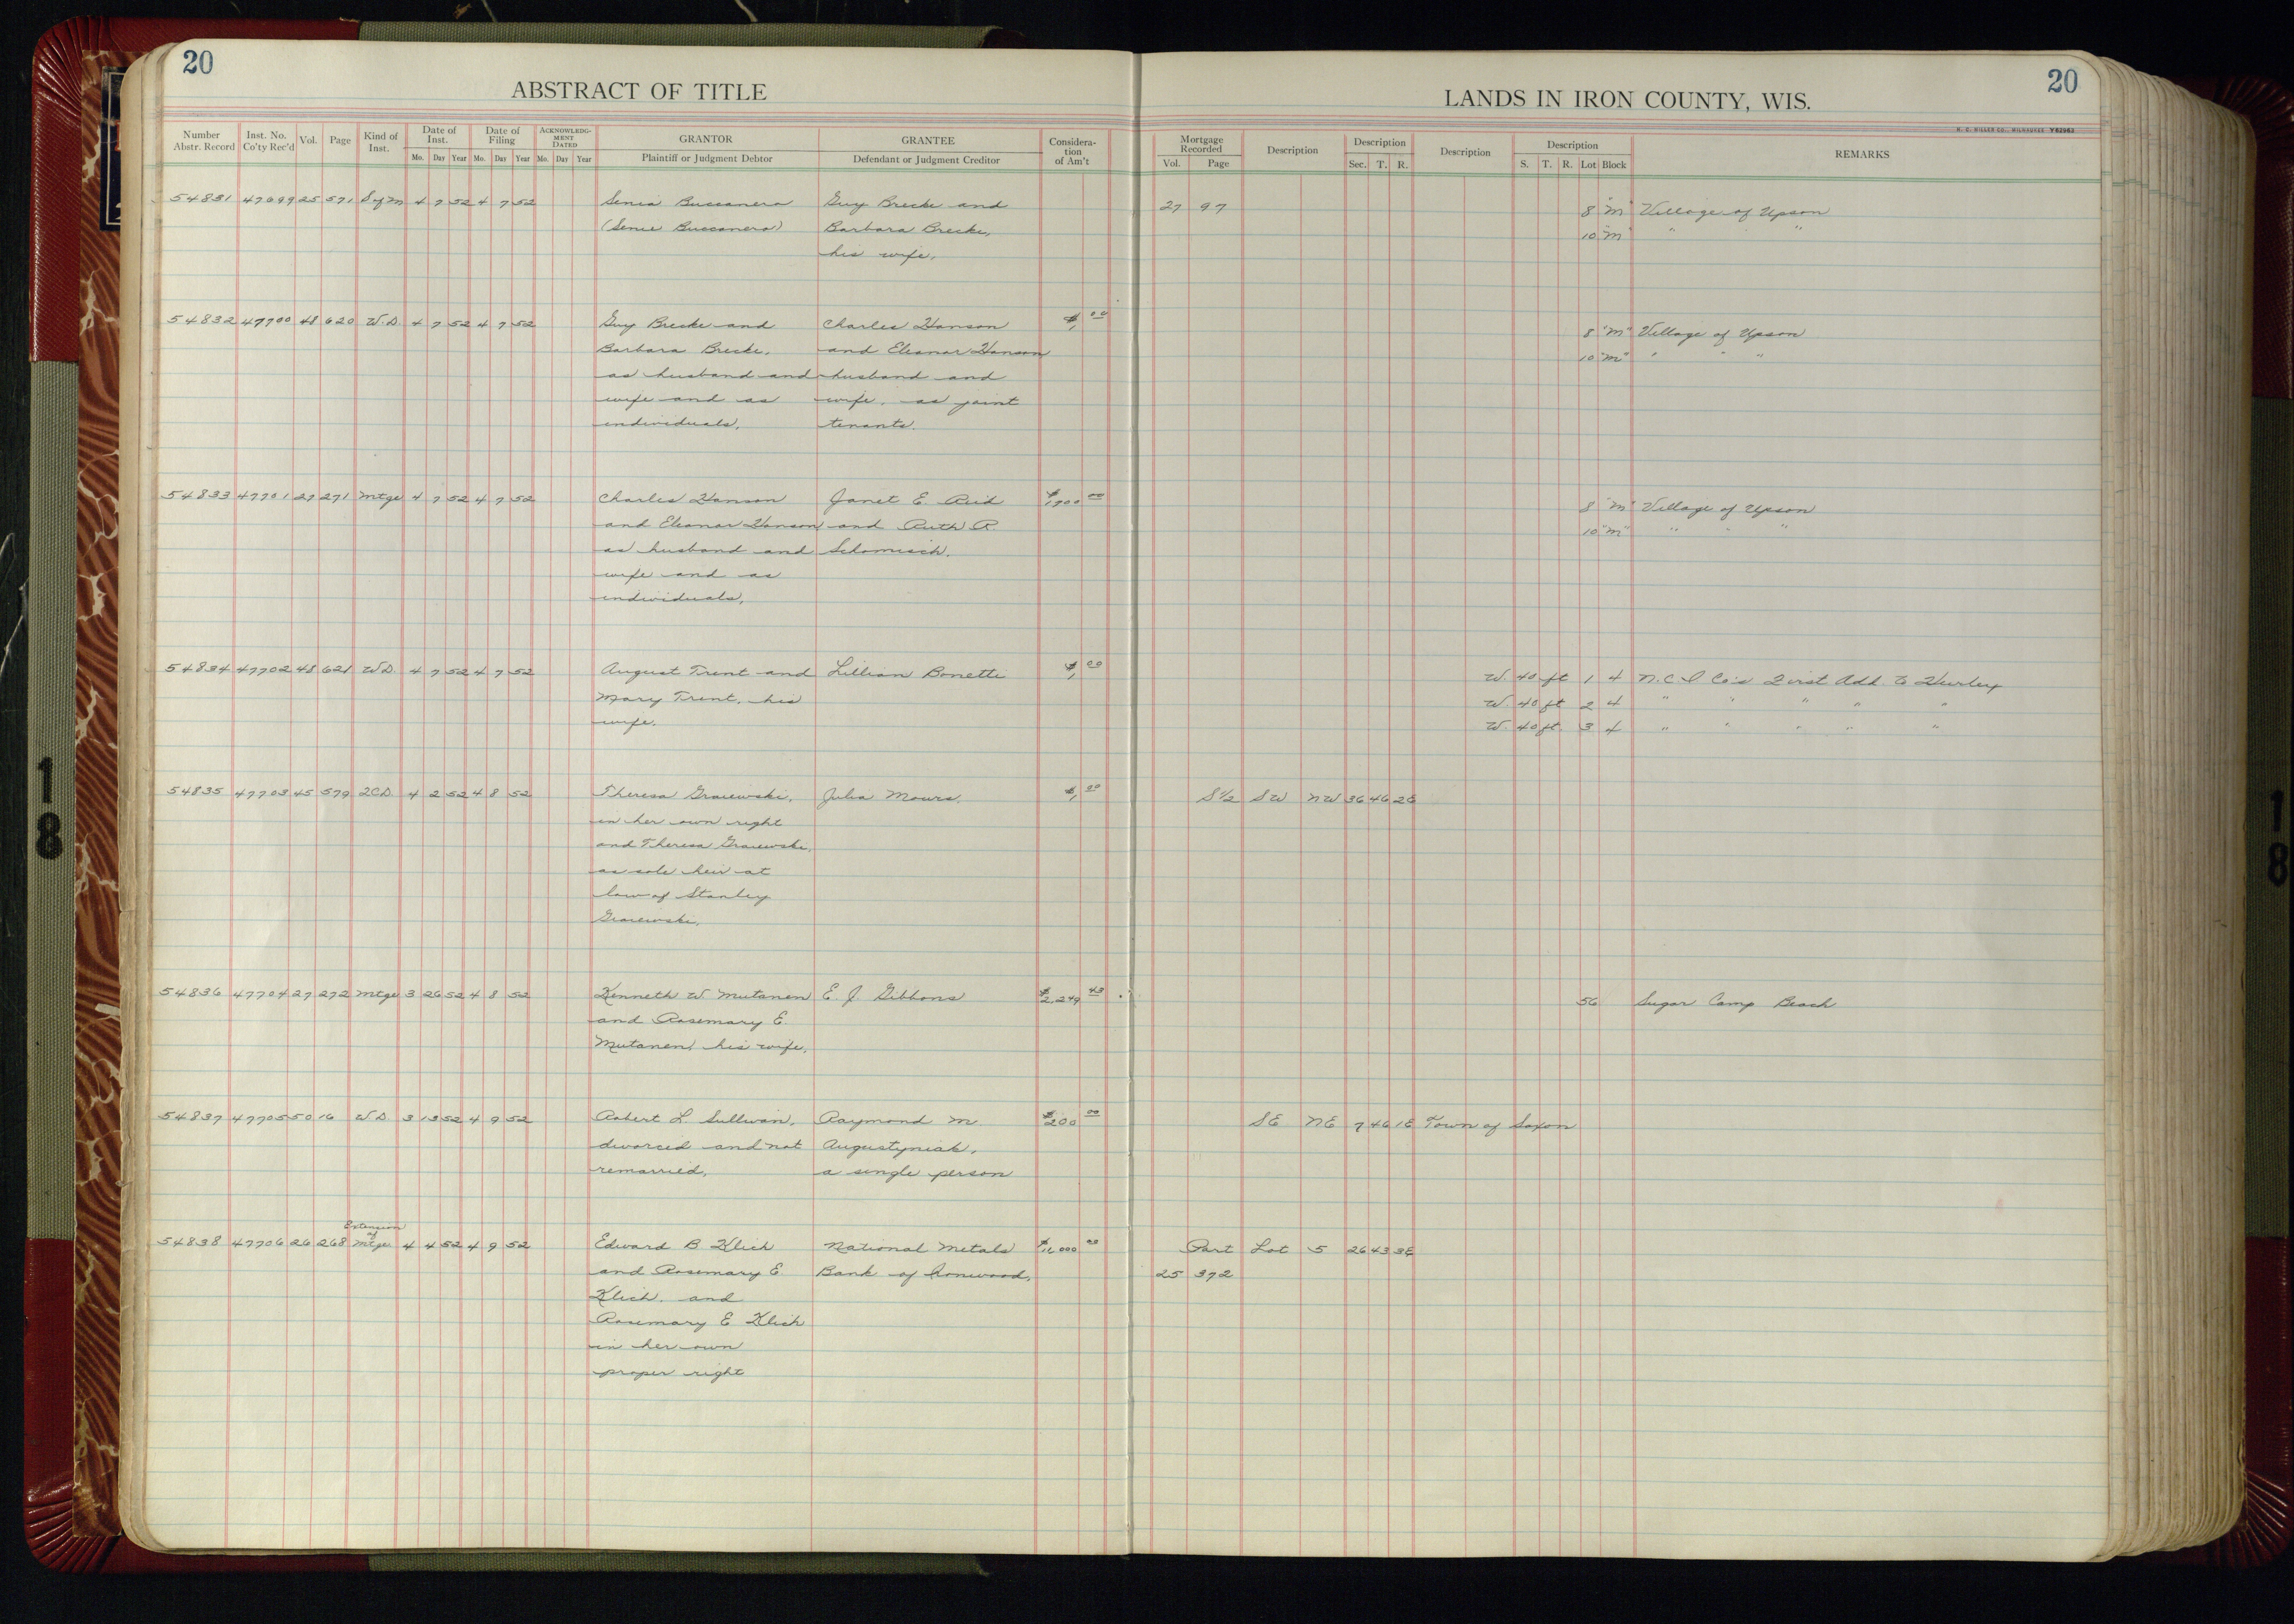 20
ABSTRACT OF TITLE
Number Abstr. Record Inst. No. Co'ty Rec'd Vol. Page Kind of Inst. Date of Inst. Mo. Day Year Date of Filing Mo. Day Year ACKNOWLEDGMENT DATED Mo. Day Year GRANTOR Plaintiff or Judgment Debtor GRANTEE Defendant or Judgment Creditor Consideration of Am't
54831 47699 25 571 S of M 4 7 52 4 7 52 Senia Buccanero Guy Brecke and
(Senie Buccanero) Barbara Brecke,
his wife,
54832 47700 48 620 W.D. 4 7 52 4 7 52 Guy Brecke and Charles Hanson $1, 00
Barbara Brecke, and Eleanor Hanson
as husband and husband and
wife and as wife, as joint
individuals, tenants.
54833 47701 27 271 Mtge 4 7 52 4 7 52 Charles Hanson Janet E. Reid $1700 00
and Eleanor Hanson and Ruth R.
as husband and
wife and as
individuals,
54834 47702 48 621 W.D. 4 7 52 4 7 52 August Trent and Lillian Bonette $1, 00
Mary Trent, his
wife.
54835 47703 45 579 2CD 4 2 52 4 8 52 Theresa Graiewski, Julia Mours. $1, 00
in her own right
and Theresa Graiewski,
as sole heir at
law of Stanley
Graiewski,
54836 47704 27 272 Mtge 3 26 52 4 8 52 Kenneth W Mutanen E. J. Gibbons $2,249 43
and Rosemary E.
Mutanen, his wife,
54837 47705 50 16 W D 3 13 52 4 9 52 Robert L. Sullivan, Raymond M. $200 00
divorced and not Augustyniak,
remarried, a single person
Extension
of
54838 47706 26 268 Mtge 4 4 52 4 9 52 Edward B Klich National Metals $11,000 00
and Rosemary E Bank of Ironwood,
Klich, and
Rosemary E Klich
in her own
proper right
20
LANDS IN IRON COUNTY, WIS.
H. C. MILLER CO., MILWAUKEE Y62962
Mortgage Recorded Vol. Page Description Description Sec. T. R. Description Description S. T. R. Lot Block REMARKS
27 97 8 "M" Village of Upson
10 "M" " "
8 "M" Village of Upson
10 "M" " " "
8 "M" Village of Upson
10 "M" " " "
W. 40 ft 1 4 N.C I Co's First Add. to Hurley
W. 40 ft 2 4 " " " " "
W. 40 ft. 3 4 " " " " "
S 1/2 SW NW 36 46 2E
56 Sugar Camp Beach
SE NE 7 46 1E Town of Saxon
Part Lot 5 26 43 3E
25 372
18
18